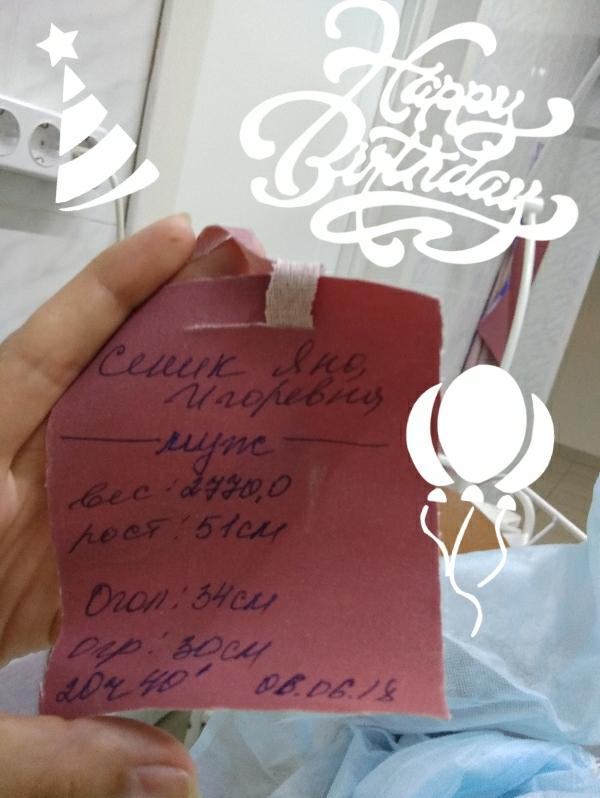 Happy
Birthday
Сеник Яна
Игоревна
муж
вес: 2770,0
рост: 51см
Огол: 34см
огр: 30см
20ч 40' 08.06.18